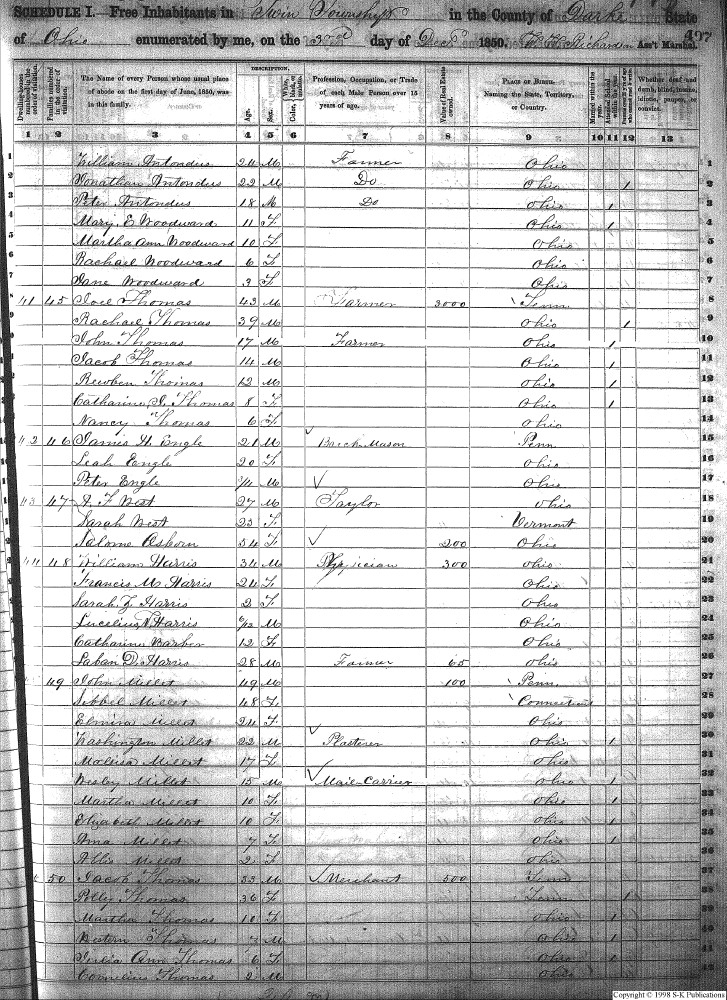 SCHEDULE I. Free Inhabitants in Twin Township in the County of Darke State
of Ohio enumerated by me, on the 3rd day of Decr 1850. Richardson Ass't Marshal. 407
Dwelling-houses numbered in the order of visitation.
Families numbered in the order of visitation.
The Name of every Person whose usual place of abode on the first day of June, 1850, was in this family.
DESCRIPTION.
Age.
Sex.
Color, White, black, or mulatto.
Profession, Occupation, or Trade of each Male Person over 15 years of age.
Value of Real Estate owned.
PLACE OF BIRTH. Naming the State, Territory, or Country.
Married within the year.
Whether deaf and dumb, blind, insane, idiotic, pauper, or convict.
1 2 3 4 5 6 7 8 9 10 11 12 13
1 William Antondus 24 M Farmer Ohio 1
2 Jonathan Antondus 22 M Do Ohio 1 2
3 Peter Antondus 18 M Do Ohio 1 3
4 Mary E Woodward 11 F Ohio 1 4
5 Martha Ann Woodward 10 F Ohio 5
6 Rachael Woodward 6 F Ohio 6
7 Jane Woodward 3 F Ohio 7
8 41 45 Joel Thomas 43 M Farmer 3000 Tenn 8
9 Rachael Thomas 39 M Ohio 1 9
10 John Thomas 17 M Farmer Ohio 1 10
11 Jacob Thomas 14 M Ohio 1 11
12 Rewben Thomas 12 M Ohio 1 12
13 Catharine Thomas 8 F Ohio 1 13
14 Nancy Thomas 6 F Ohio 14
15 42 46 James H Engle 21 M Brick Mason Penn 15
16 Leah Engle 20 F Ohio 16
17 Peter Engle M Ohio 17
18 43 47 A F West 27 M Taylor Ohio 18
19 Sarah West 23 F Vermont 19
20 Salome Osborn 54 F 200 Ohio 20
21 44 48 William Harris 34 M Physician 300 Ohio 21
22 Francis M Harris 24 F Ohio 22
23 Sarah Harris 2 F Ohio 23
24 Harris M Ohio 24
25 Catharine Barber 12 F Ohio 25
26 Laban D. Harris 28 M Farmer 65 Ohio 26
27 49 John Millet 49 M 100 Penn 27
28 Sibbel Millet 48 F Connecticut 28
29 Elmira Millet 24 F Ohio 29
30 Washington Millet 22 M Plasterer Ohio 1 30
31 Malissa Millet 17 F Ohio 31
32 Wesley Millet 15 M Mail-Carrier Ohio 1 32
33 Martha Millet 10 F Ohio 1 33
34 Elizabeth Millet 10 F Ohio 1 34
35 Ama Millet 7 F Ohio 1 35
36 Millet 2 F Ohio 36
37 50 Jacob Thomas 33 M Merchant 500 Tenn 37
38 Polley Thomas 36 F Tenn 1 38
39 Martha Thomas 10 F Ohio 1 39
40 Thomas 7 M Ohio 1 40
41 Julia Ann Thomas 6 F Ohio 1 41
42 Cornelius Thomas 2 M Ohio 42
Copyright © 1998 S-K Publications